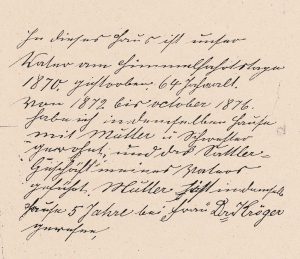 In dieses Haus ist unser
Vater am Himmelfahrtstage
1870. gestorben. 64 Jahralt.
von 1872 bis october 1876.
habe ich in demselben Hause
mit Mutter u Schwester
gewohnt, und das Sattler-
Geschäft meines Vaters
geführt. Mutter ist in demselb
Hause 5 Jahre bei Frau Kröger
gewesen,